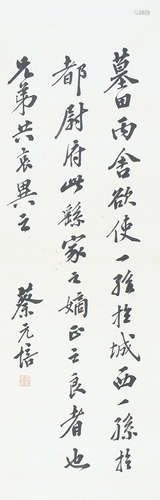 墓田丙舍欲使一孫於城西一孫於
都尉府此繇家之嫡正之良者也
兄弟共哀異之
蔡元培